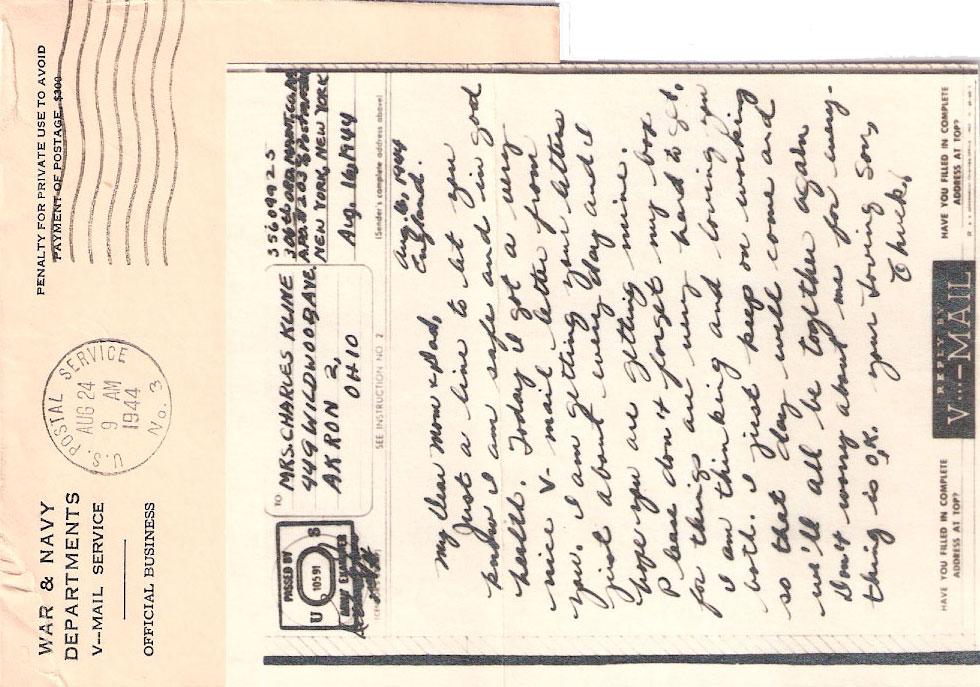 WAR & NAVY
DEPARTMENTS
V--MAIL SERVICE
OFFICIAL BUSINESS
U.S. POSTAL SERVICE
AUG 24
9 AM
1944
No. 3
PENALTY FOR PRIVATE USE TO AVOID
PAYMENT OF POSTAGE, $300
PASSED BY
U S
10591
ARMY EXAMINER
TO
MRS. CHARLES KLINE
449 WILDWOOD AVE,
AKRON 2,
OHIO
SEE INSTRUCTION NO. 2
35609925
NEW YORK, NEW YORK
Aug. 16, 1944
(Sender's complete address above)
Aug. 16, 1944
England.
My dear Mom & Dad,
Just a line to let you
know I am safe and in good
health. Today I got a very
nice V-mail letter from
you. I am getting your letters
just about every day and I
hope you are getting mine.
Please don't forget my box
for things are very hard to get.
I am thinking and loving you
both. I just keep on working
so that day will come and
we'll all be together again
Don't worry about me for every-
thing is O.K. your loving Son,
Chuck.
HAVE YOU FILLED IN COMPLETE
ADDRESS AT TOP?
REPLY BY
V···—MAIL
HAVE YOU FILLED IN COMPLETE
ADDRESS AT TOP?